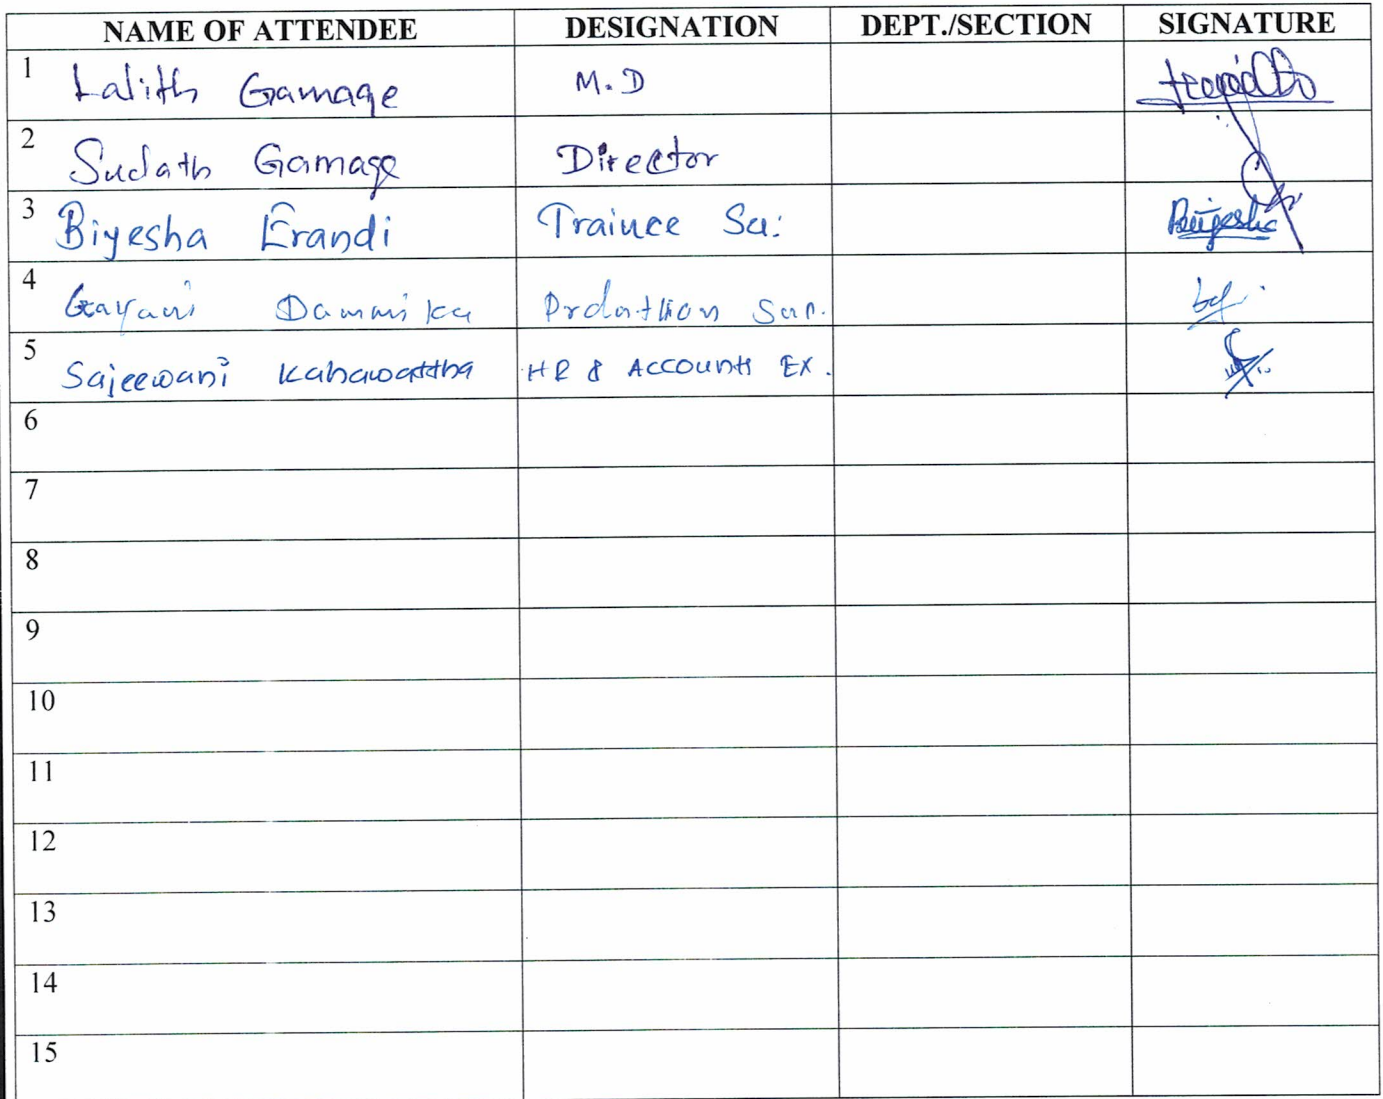 NAME OF ATTENDEE DESIGNATION DEPT./SECTION SIGNATURE
1 Lalith Gamage M.D
2 Sudath Gamage Director
3 Biyesha Erandi Trainee Su:
4 Gayani Dammika Prdouthion Sup.
5 Sajeewani Kahawattha HR & Accounts EX.
6
7
8
9
10
11
12
13
14
15